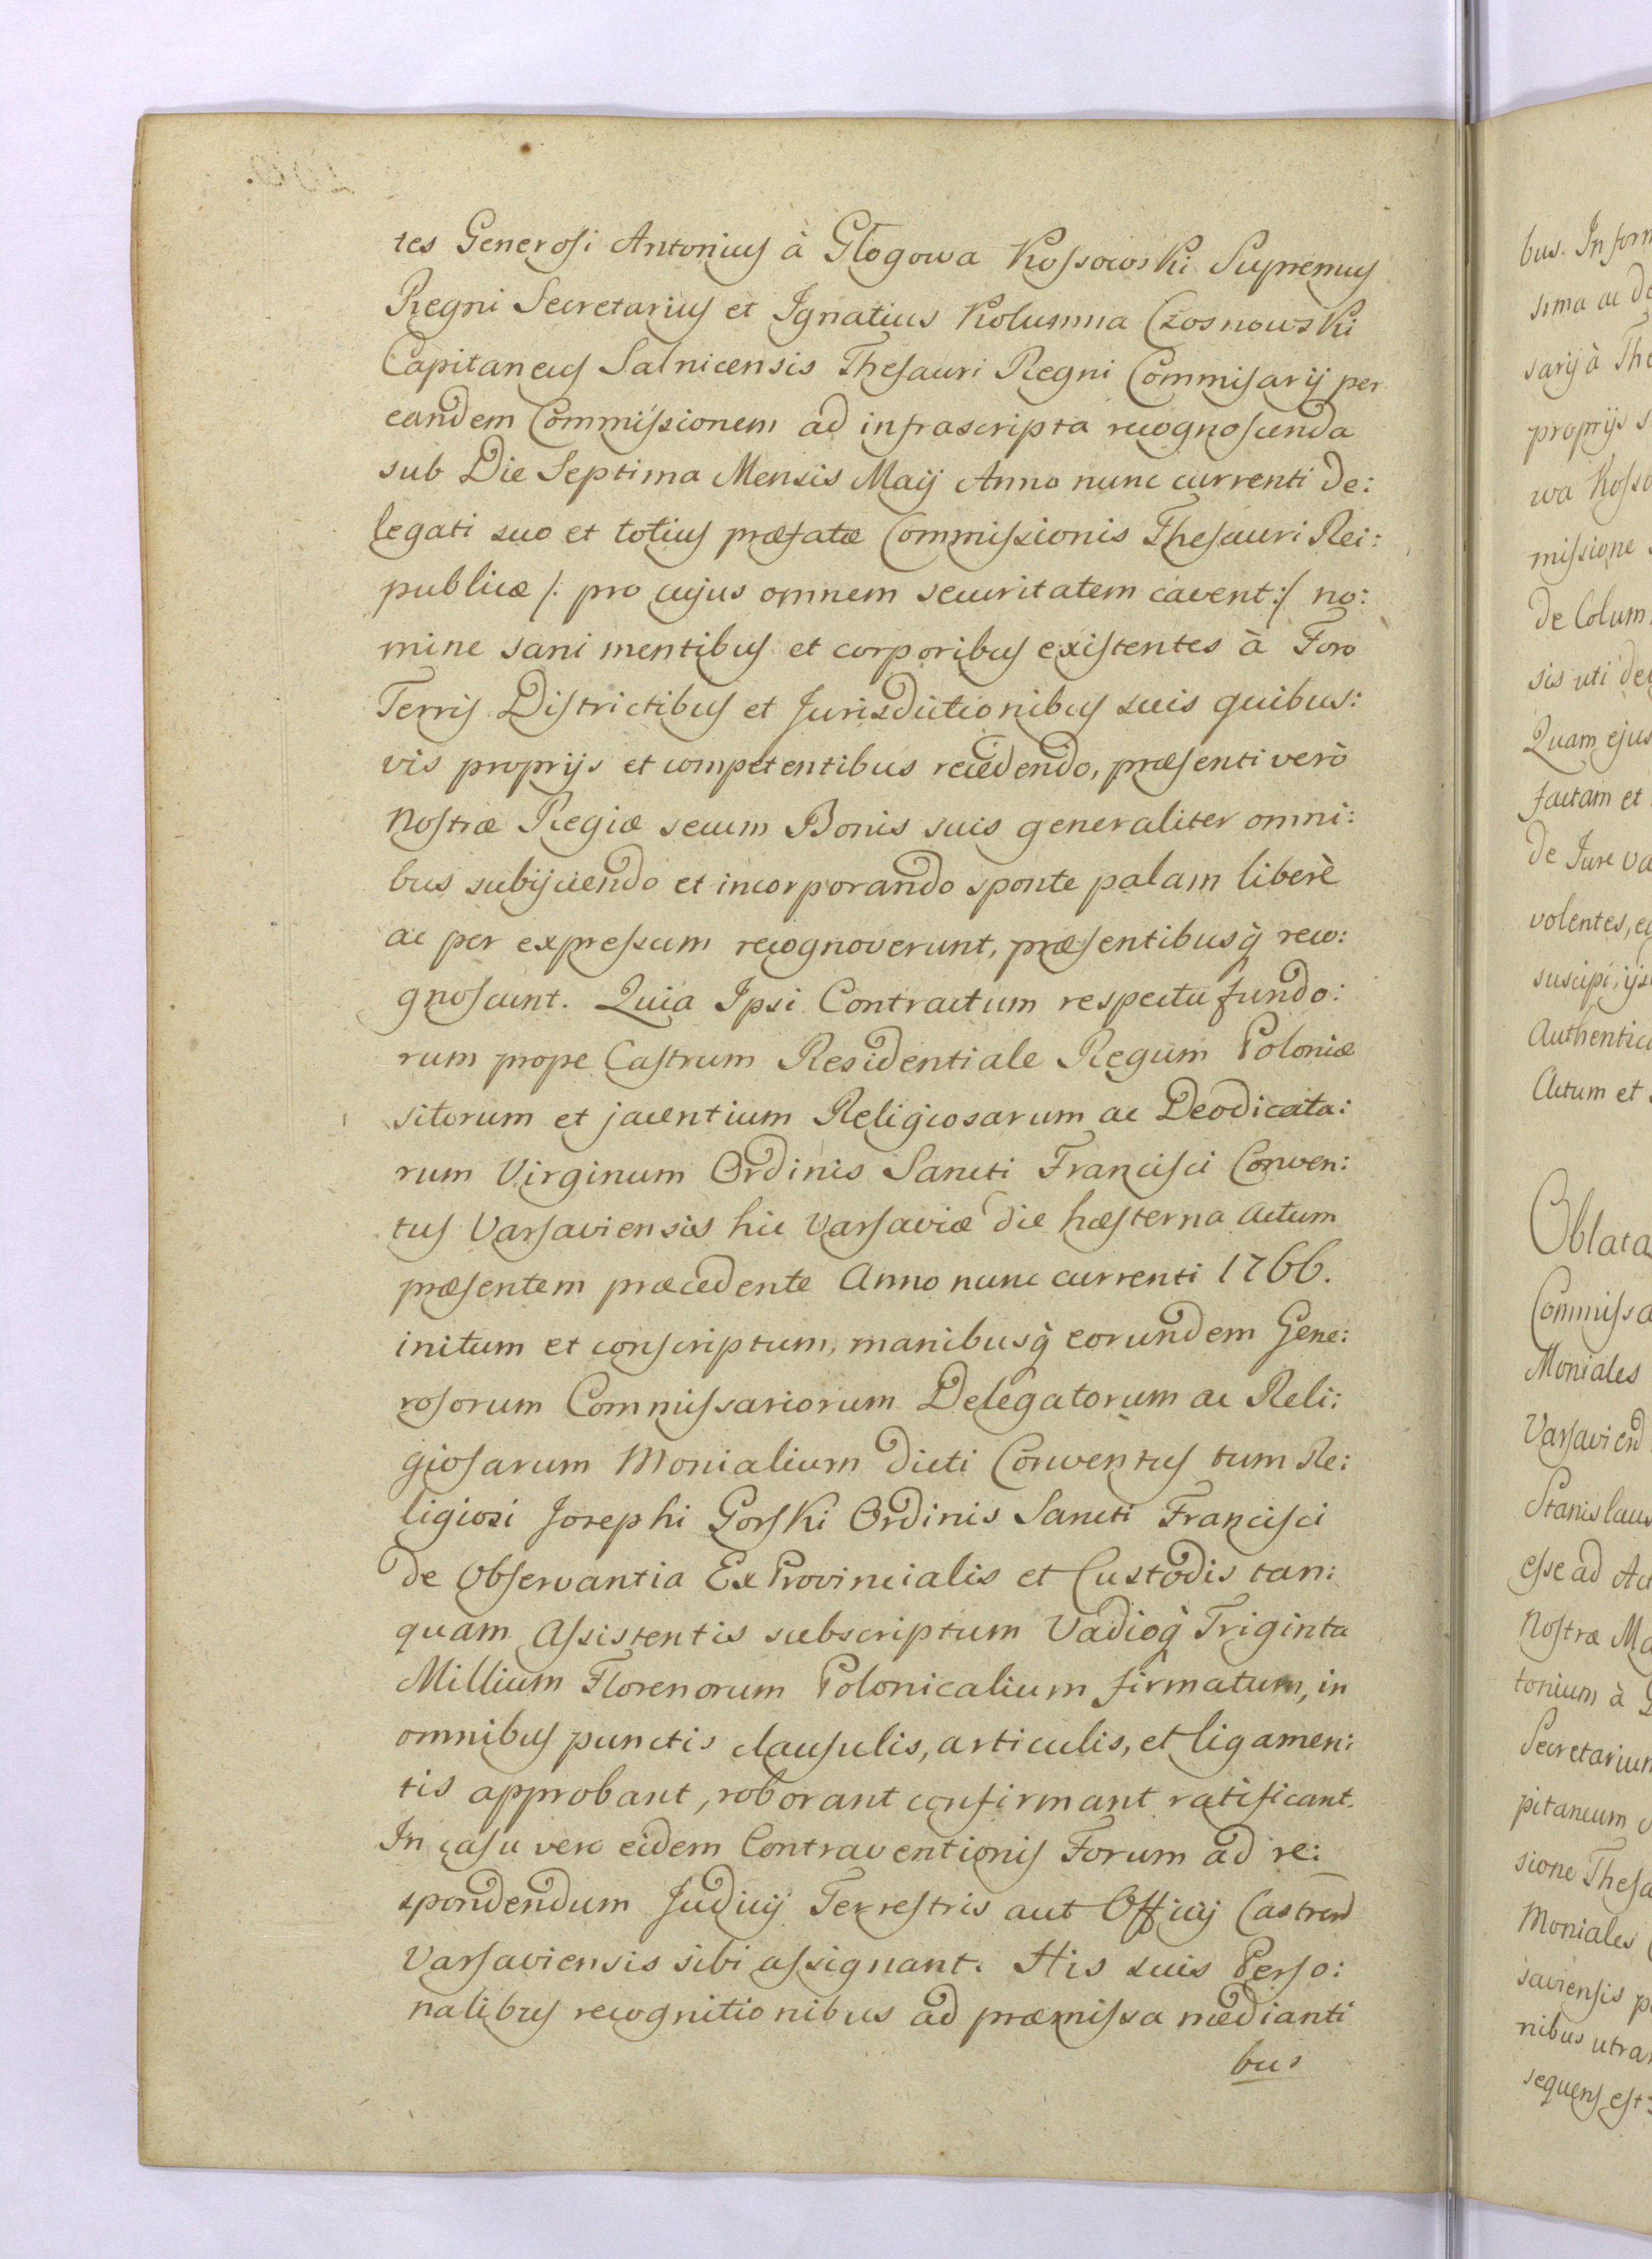 tes Generosi Antonius à Głogowa Kossowski Supremus
Regni Secretarius et Ignatius Kolumna Czosnowski
Capitaneus Salnicensis Thesauri Regni Commisarij per
eandem Commissionem ad infrascripta recognoscenda
sub Die Septima Mensis Maij Anno nunc currenti de:
legati suo et totius præfatæ Commissionis Thesauri Rei:
publicæ /: pro cujus omnem securitatem cavent :/ no:
mine sani mentibus et corporibus existentes à Foro
Terris Districtibus et Jurisdictionibus suis quibus:
vis proprijs et competentibus recedendo, præsenti verò
Nostræ Regiæ secum Bonis suis generaliter omni:
bus subijciendo et incorporando sponte palam liberè
ac per expressum recognoverunt, præsentibusq̀ reco:
gnoscunt. Quia Ipsi Contractum respectu fundo:
rum prope Castrum Residentiale Regum Poloniæ
sitorum et jacentium Religiosarum ac Deodicata:
rum Virginum Ordinis Sancti Francisci Conven:
tus Varsaviensis hic Varsaviæ die hæsterna Actum
præsentem præcedente Anno nunc currenti 1766.
initum et conscriptum, manibusq̀ eorundem Gene:
rosorum Commissariorum Delegatorum ac Reli:
giosarum Monialium dicti Conventus tum Re:
ligiosi Josephi Gorski Ordinis Sancti Francisci
de Observantia ExProvincialis et Custodis tan:
quam Assistentis subscriptum Vadioq̀ Triginta
Millium Florenorum Polonicalium firmatum, in
omnibus punctis clausulis, articulis, et ligamen:
tis approbant, roborant confirmant ratificant.
In casu vero eidem Contraventionis Forum ad re:
spondendum Judicij Terrestris aut Officij Castren
Varsaviensis sibi assignant. His suis Perso:
nalibus recognitionibus ad præmissa medianti
bus
bus. In form
sima ac de
sarij à The
proprijs s
wa Kosso
missione
de Colum
sis uti de
Quam ejus
factam et
de Jure va
volentes, e
suscipi, ijs
Authentic
Actum et
Oblata
Commissa
Moniales
Varsavien
Stanislaus
esse ad Act
Nostræ Ma
tonium à G
Secretarium
pitaneum
sione Thesa
Moniales
saviensis p
nibus utra
sequens est: